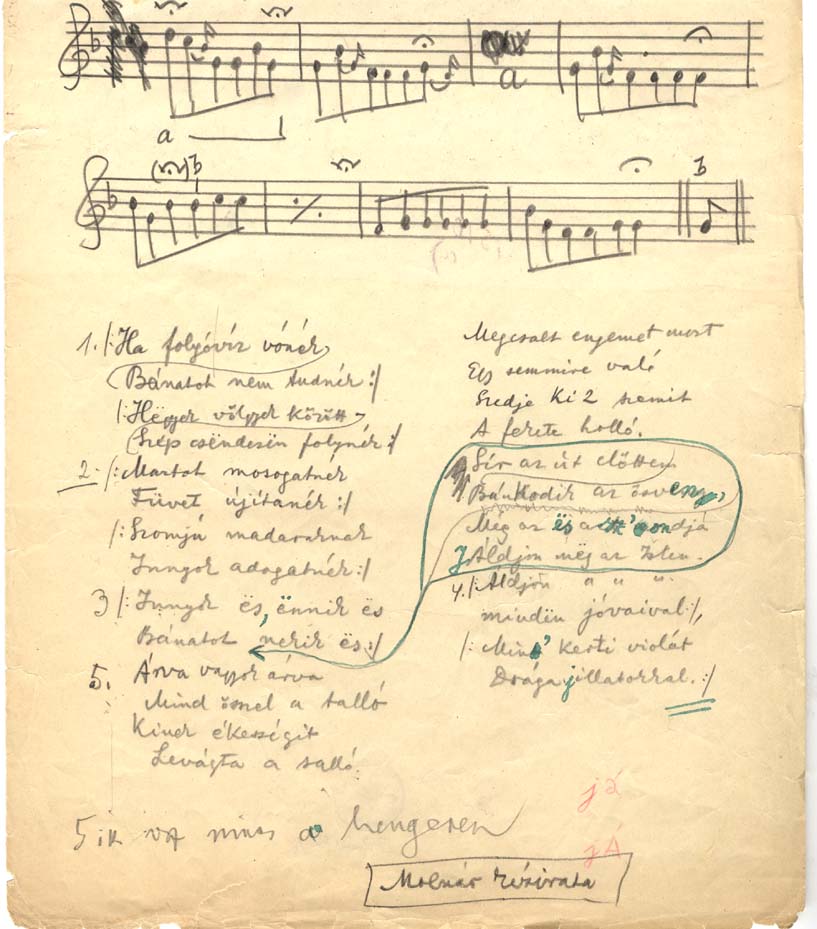 a
a
b
b
1. /: Ha folyóvíz vónék
Bánatot nem tudnék :/
/: Hëgyek völgyek között
Szép csëndesën folynék :/
2. /: Martot mosogatnék
Füvet újítanék :/
/: Szomjú madaraknak
Innyok adogatnék :/
3 /: Innyok ës, ënnik ës
Bánatot nekik ës :/
5. Árva vagyok árva
Mind ősnel a talló
Kinek ékességit
Levágta a salló.
Megcsalt engemet most
Egy semmire való
Szedje ki 2 szemit
A fekete holló.
Sír az út előttem
Bánkodik az ösveny,
Még az ës azt
Áldjon még az Isten.
4. /: Áldjon " " "
mindën jóvaival :/,
/: Mind' kerti violát
Drága jillatokkal. :/
5 ik vsz nincs a hengeren
já
jÁ
Molnár kézirata